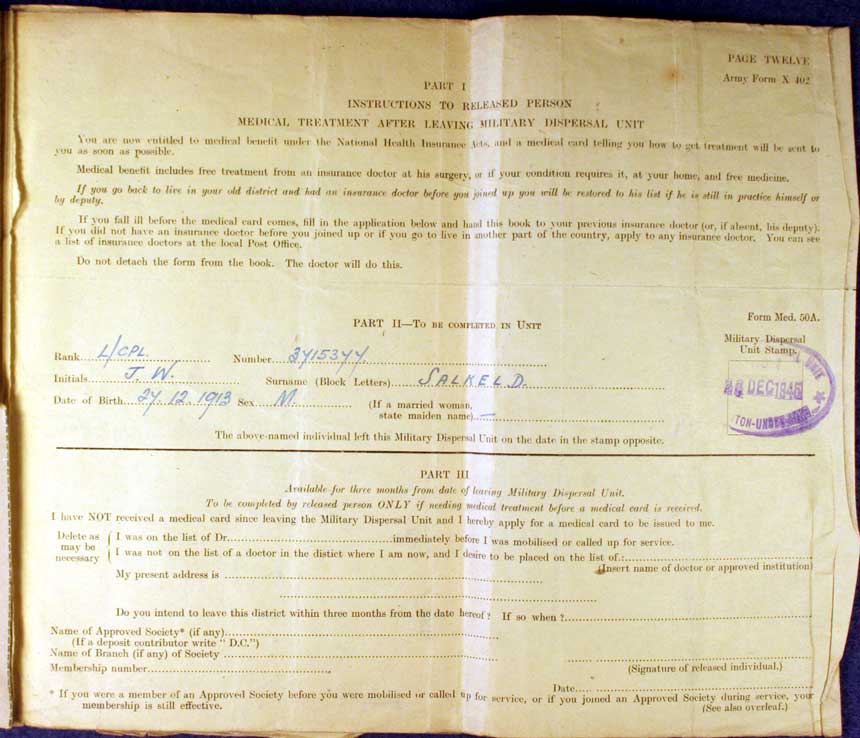 PAGE TWELVE
Army Form X 402
PART I
INSTRUCTIONS TO RELEASED PERSON
MEDICAL TREATMENT AFTER LEAVING MILITARY DISPERSAL UNIT
You are now entitled to medical benefit under the National Health Insurance Acts, and a medical card telling you how to get treatment will be sent to
you as soon as possible.
Medical benefit includes free treatment from an insurance doctor at his surgery, or if your condition requires it, at your home, and free medicine.
If you go back to live in your old district and had an insurance doctor before you joined up you will be restored to his list if he is still in practice himself or
by deputy.
If you fall ill before the medical card comes, fill in the application below and hand this book to your previous insurance doctor (or, if absent, his deputy).
If you did not have an insurance doctor before you joined up or if you go to live in another part of the country, apply to any insurance doctor. You can see
a list of insurance doctors at the local Post Office.
Do not detach the form from the book. The doctor will do this.
Form Med. 50A.
PART II—TO BE COMPLETED IN UNIT
Military Dispersal
Unit Stamp.
Rank L/CPL. Number 3715377
Initials J. W. Surname (Block Letters) SALKELD.
Date of Birth 27.12.1913 Sex M. (If a married woman,
state maiden name) —
DEC 1945
TON-UNDER
The above-named individual left this Military Dispersal Unit on the date in the stamp opposite.
PART III
Available for three months from date of leaving Military Dispersal Unit.
To be completed by released person ONLY if needing medical treatment before a medical card is received.
I have NOT received a medical card since leaving the Military Dispersal Unit and I hereby apply for a medical card to be issued to me.
Delete as
may be
necessary
I was on the list of Dr. immediately before I was mobilised or called up for service.
I was not on the list of a doctor in the distict where I am now, and I desire to be placed on the list of.:
(Insert name of doctor or approved institution)
My present address is
Do you intend to leave this district within three months from the date hereof? If so when?
Name of Approved Society* (if any)
(If a deposit contributor write "D.C.")
Name of Branch (if any) of Society
Membership number
(Signature of released individual.)
Date
* If you were a member of an Approved Society before you were mobilised or called up for service, or if you joined an Approved Society during service, your
membership is still effective.
(See also overleaf.)